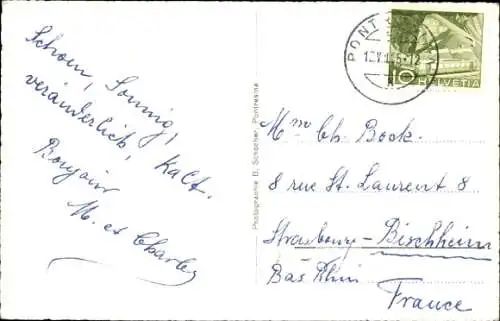 Schön, Sonnig,
veränderlich, Kalt.
Bonjour
M. et Charles
Photographie B. Schocher, Pontresina
PONT
10
HELVETIA
Mme Ch. Bock.
8 rue St. Laurent 8
Strasbourg-Bischheim
Bas Rhin
France